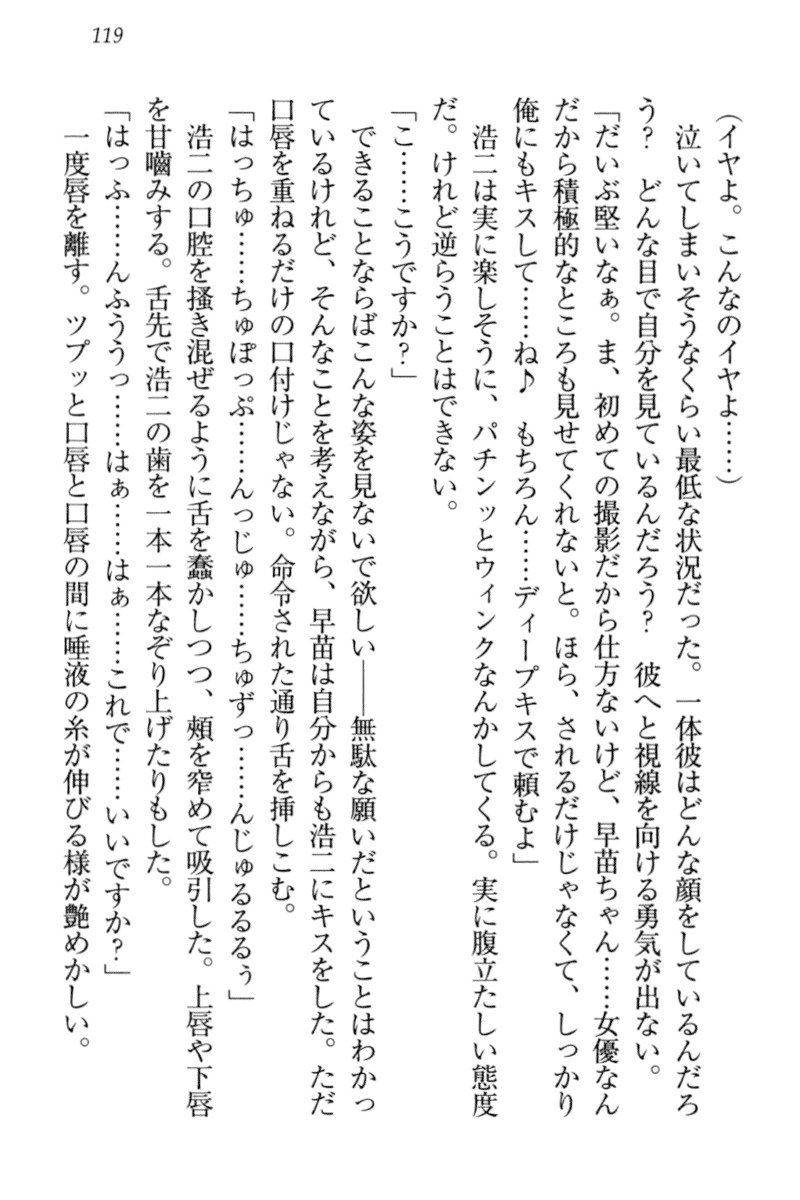 119
(イヤよ。こんなのイヤよ……)
泣いてしまいそうなくらい最低な状況だった。一体彼はどんな顔をしているんだろ
う？　どんな目で自分を見ているんだろう？　彼へと視線を向ける勇気が出ない。
「だいぶ堅いなぁ。ま、初めての撮影だから仕方ないけど、早苗ちゃん……女優なん
だから積極的なところも見せてくれないと。ほら、されるだけじゃなくて、しっかり
俺にもキスして……ね♪　もちろん……ディープキスで頼むよ」
浩二は実に楽しそうに、パチンッとウィンクなんかしてくる。実に腹立たしい態度
だ。けれど逆らうことはできない。
「こ……こうですか？」
できることならばこんな姿を見ないで欲しい――無駄な願いだということはわかっ
ているけれど、そんなことを考えながら、早苗は自分からも浩二にキスをした。ただ
口唇を重ねるだけの口付けじゃない。命令された通り舌を挿しこむ。
「はっちゅ……ちゅぽっぷ……んっじゅ……ちゅずっ……んじゅるるるぅ」
浩二の口腔を掻き混ぜるように舌を蠢かしつつ、頬を窄めて吸引した。上唇や下唇
を甘噛みする。舌先で浩二の歯を一本一本なぞり上げたりもした。
「はっふ……んふううっ……はぁ……はぁ……これで……いいですか？」
一度唇を離す。ツプッと口唇と口唇の間に唾液の糸が伸びる様が艶めかしい。